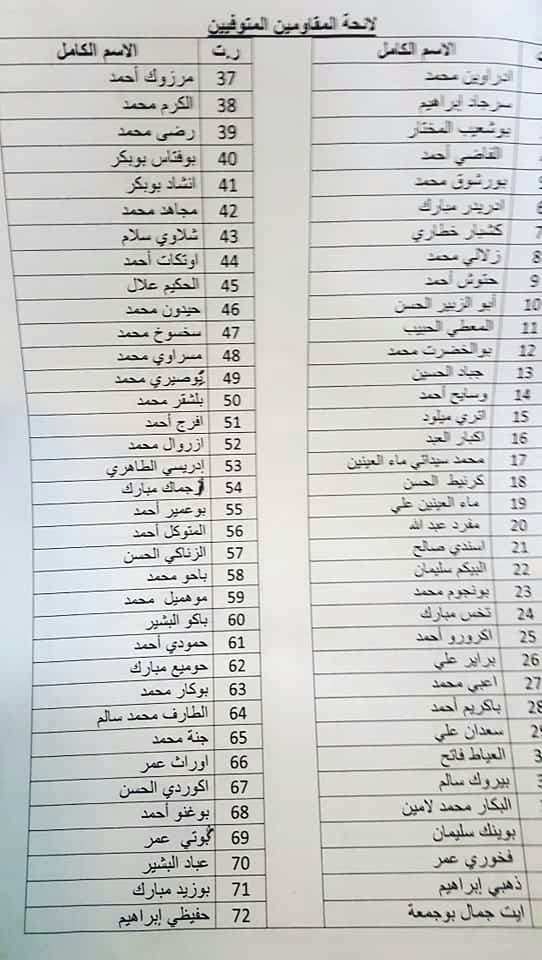 لائحة المقاومين المتوفيين
الاسم الكامل
ادراوين محمد
سرجاد إبراهيم
بوشعيب المختار
القاضي أحمد
بورشوق محمد
ادريدر مبارك 6
كشبار خطاري 7
زلالي محمد 8
حتوش أحمد 9
أبو الزبير الحسن 10
المعطي الحبيب 11
بوالخضرت محمد 12
جباد الحسين 13
وسايح أحمد 14
اتري ميلود 15
اكبار العبد 16
محمد سيداتي ماء العينين 17
كرنيط الحسن 18
ماء العينين علي 19
مفرد عبد الله 20
اسندي صالح 21
البيكم سليمان 22
بونجوم محمد 23
تخس مبارك 24
اكرورو أحمد 25
براير علي 26
اعبي محمد 27
باكريم أحمد 28
سعدان علي
العياط فاتح
بيروك سالم
البكار محمد لامين
بوينك سليمان
فخوري عمر
ذهبي إبراهيم
ايت جمال بوجمعة
ر.ت الاسم الكامل
37 مرزوك أحمد
38 الكرم محمد
39 رضى محمد
40 بوفتاس بوبكر
41 انشاد بوبكر
42 مجاهد محمد
43 شلاوي سلام
44 اوتكات أحمد
45 الحكيم علال
46 حيدون محمد
47 سخسوخ محمد
48 مسراوي محمد
49 بوصيري محمد
50 بلشقر محمد
51 افرج أحمد
52 ازروال محمد
53 إدريسي الطاهري
54 ارجماك مبارك
55 بوعمير أحمد
56 المتوكل أحمد
57 الزناكي الحسن
58 باحو محمد
59 موهميل محمد
60 باكو البشير
61 حمودي أحمد
62 حوميع مبارك
63 بوكار محمد
64 الطارف محمد سالم
65 جنة محمد
66 اوراث عمر
67 اكوردي الحسن
68 بوغنو أحمد
69 بوتي عمر
70 عباد البشير
71 بوزيد مبارك
72 حفيظي إبراهيم